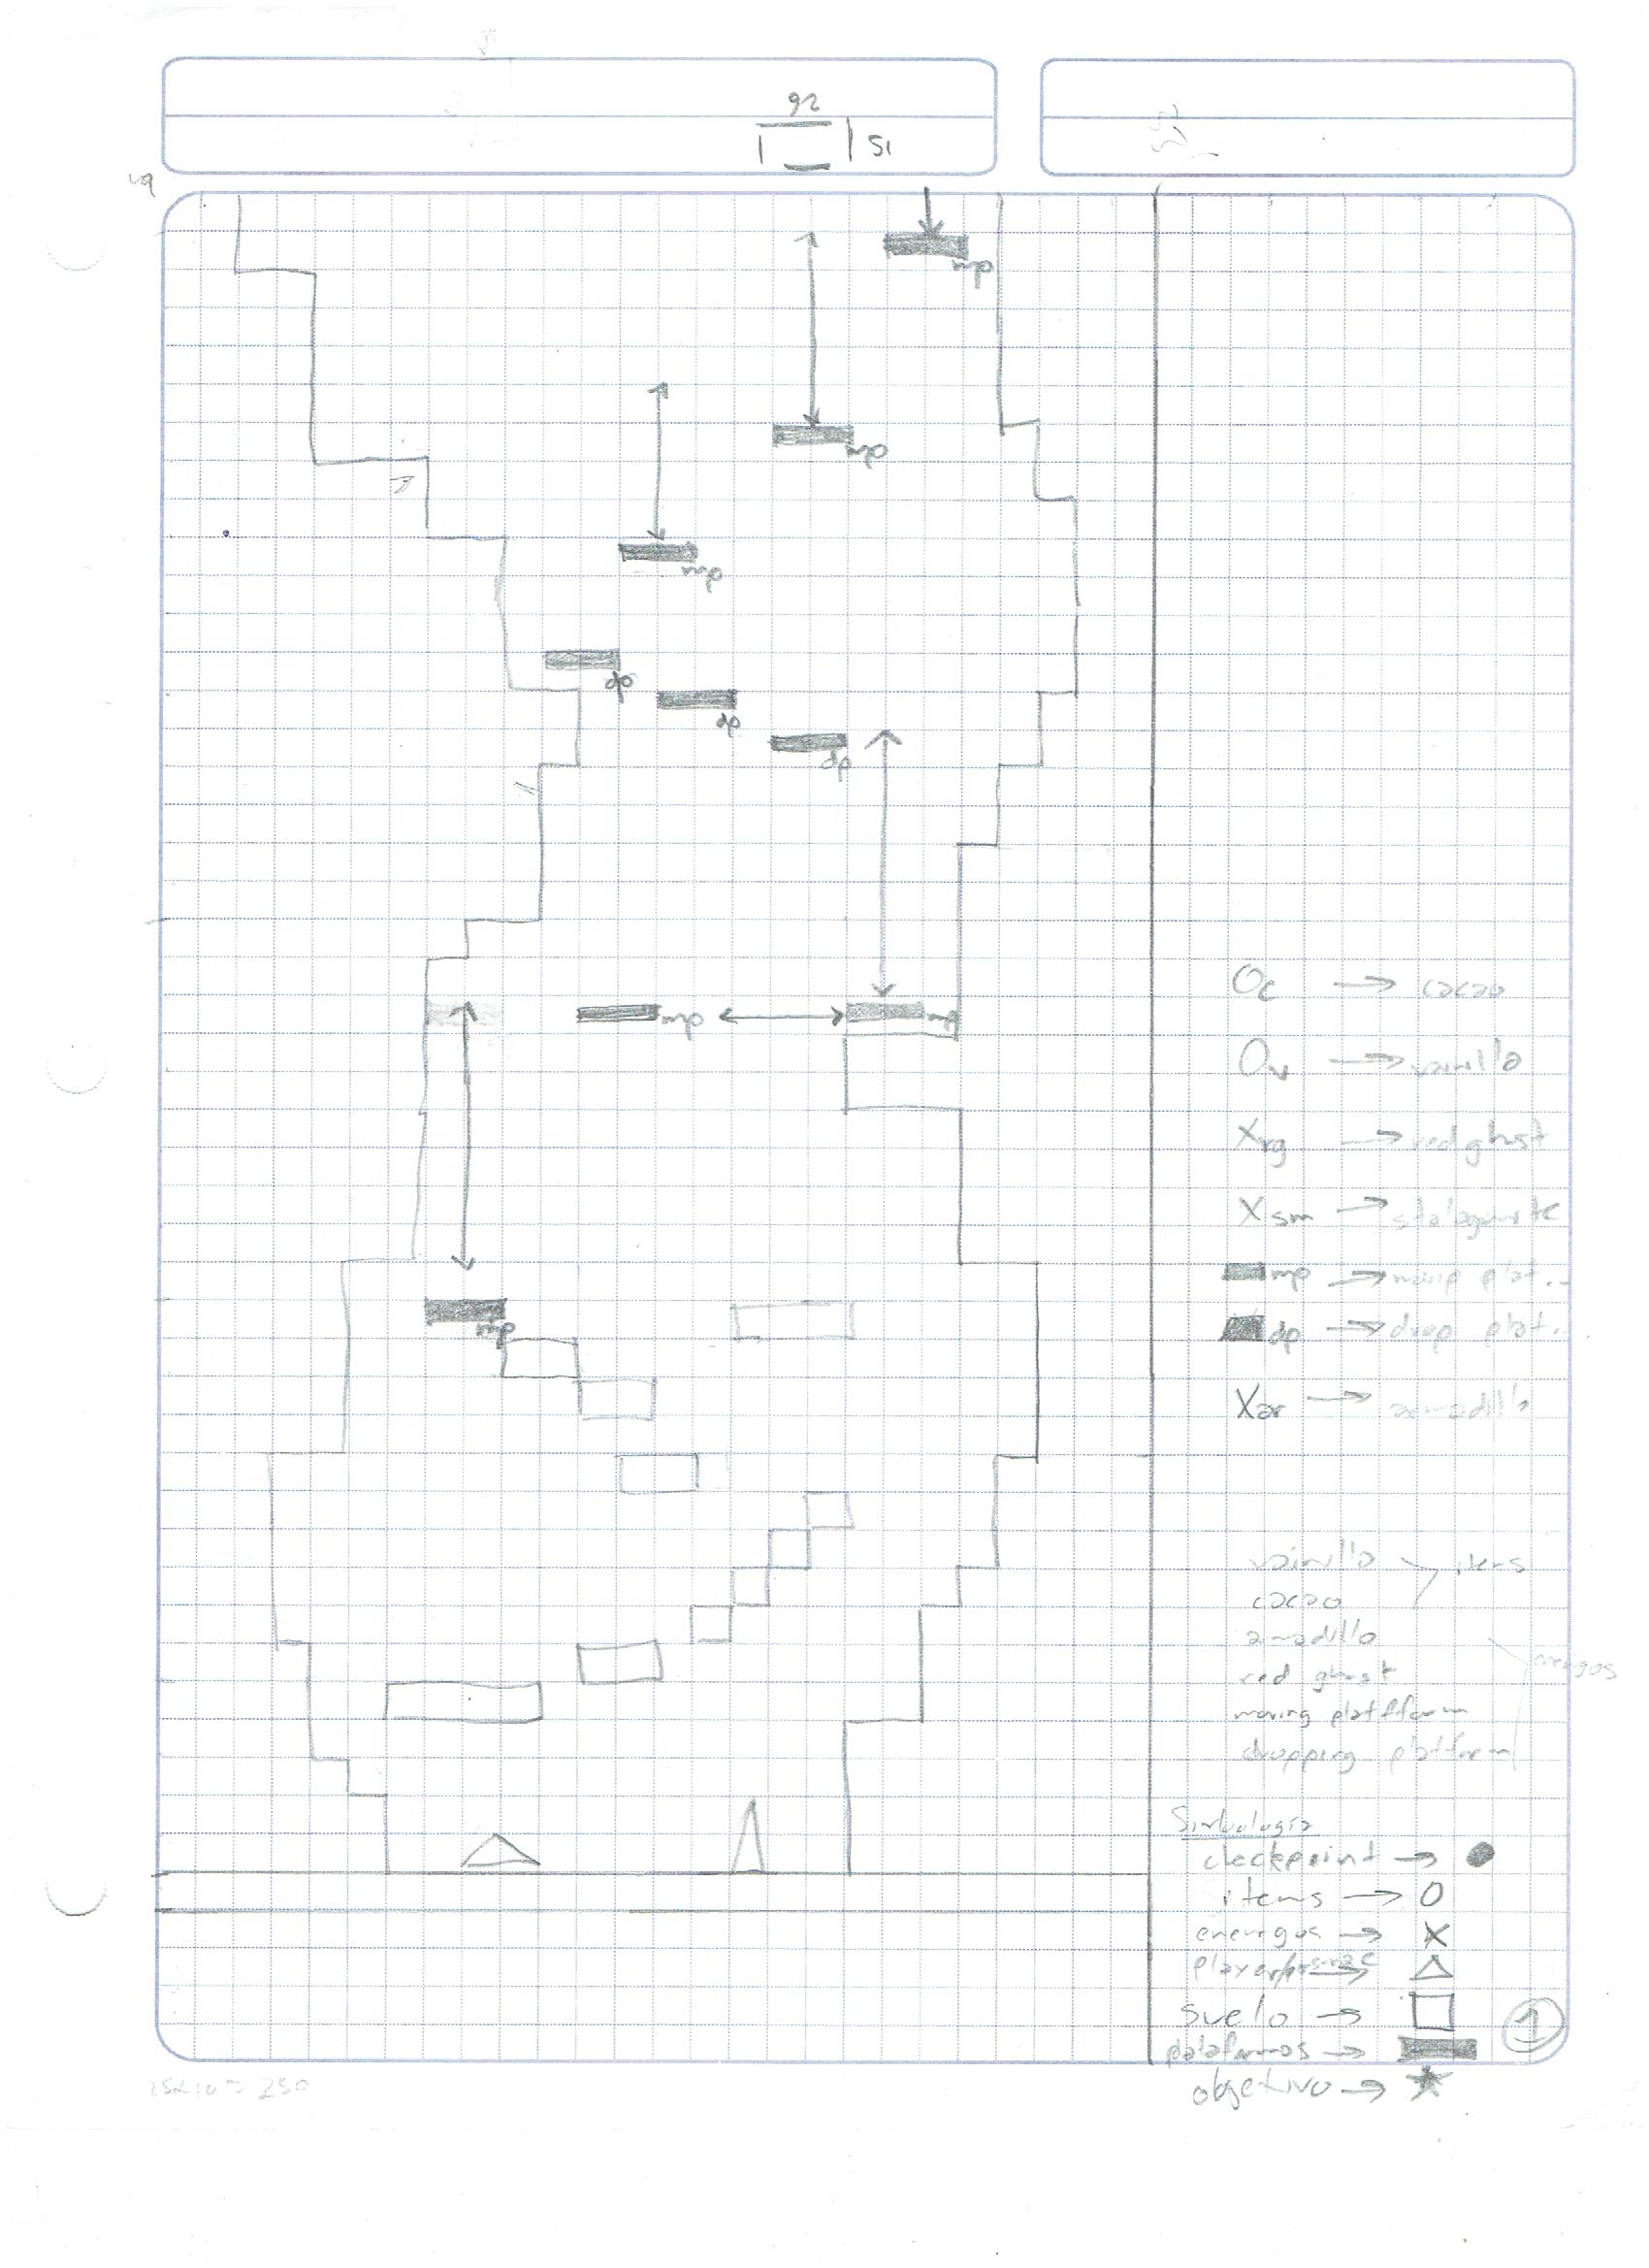 92
51
mp
mp
mp
dp
dp
dp
mp
mp
mp
Oc → cacao
Ov → vainilla
Xrg → red ghost
Xsm → stalagmite
mp → movip plat..
dp → drop plat..
Xar → armadillo
vainilla
items
cacao
armadillo
red ghost
moving platfform
dropping platform
Simbología
checkpoint →
items → O
enemigos → X
player →
suelo →
plataformas →
objetivo →
1
25x10 = 250